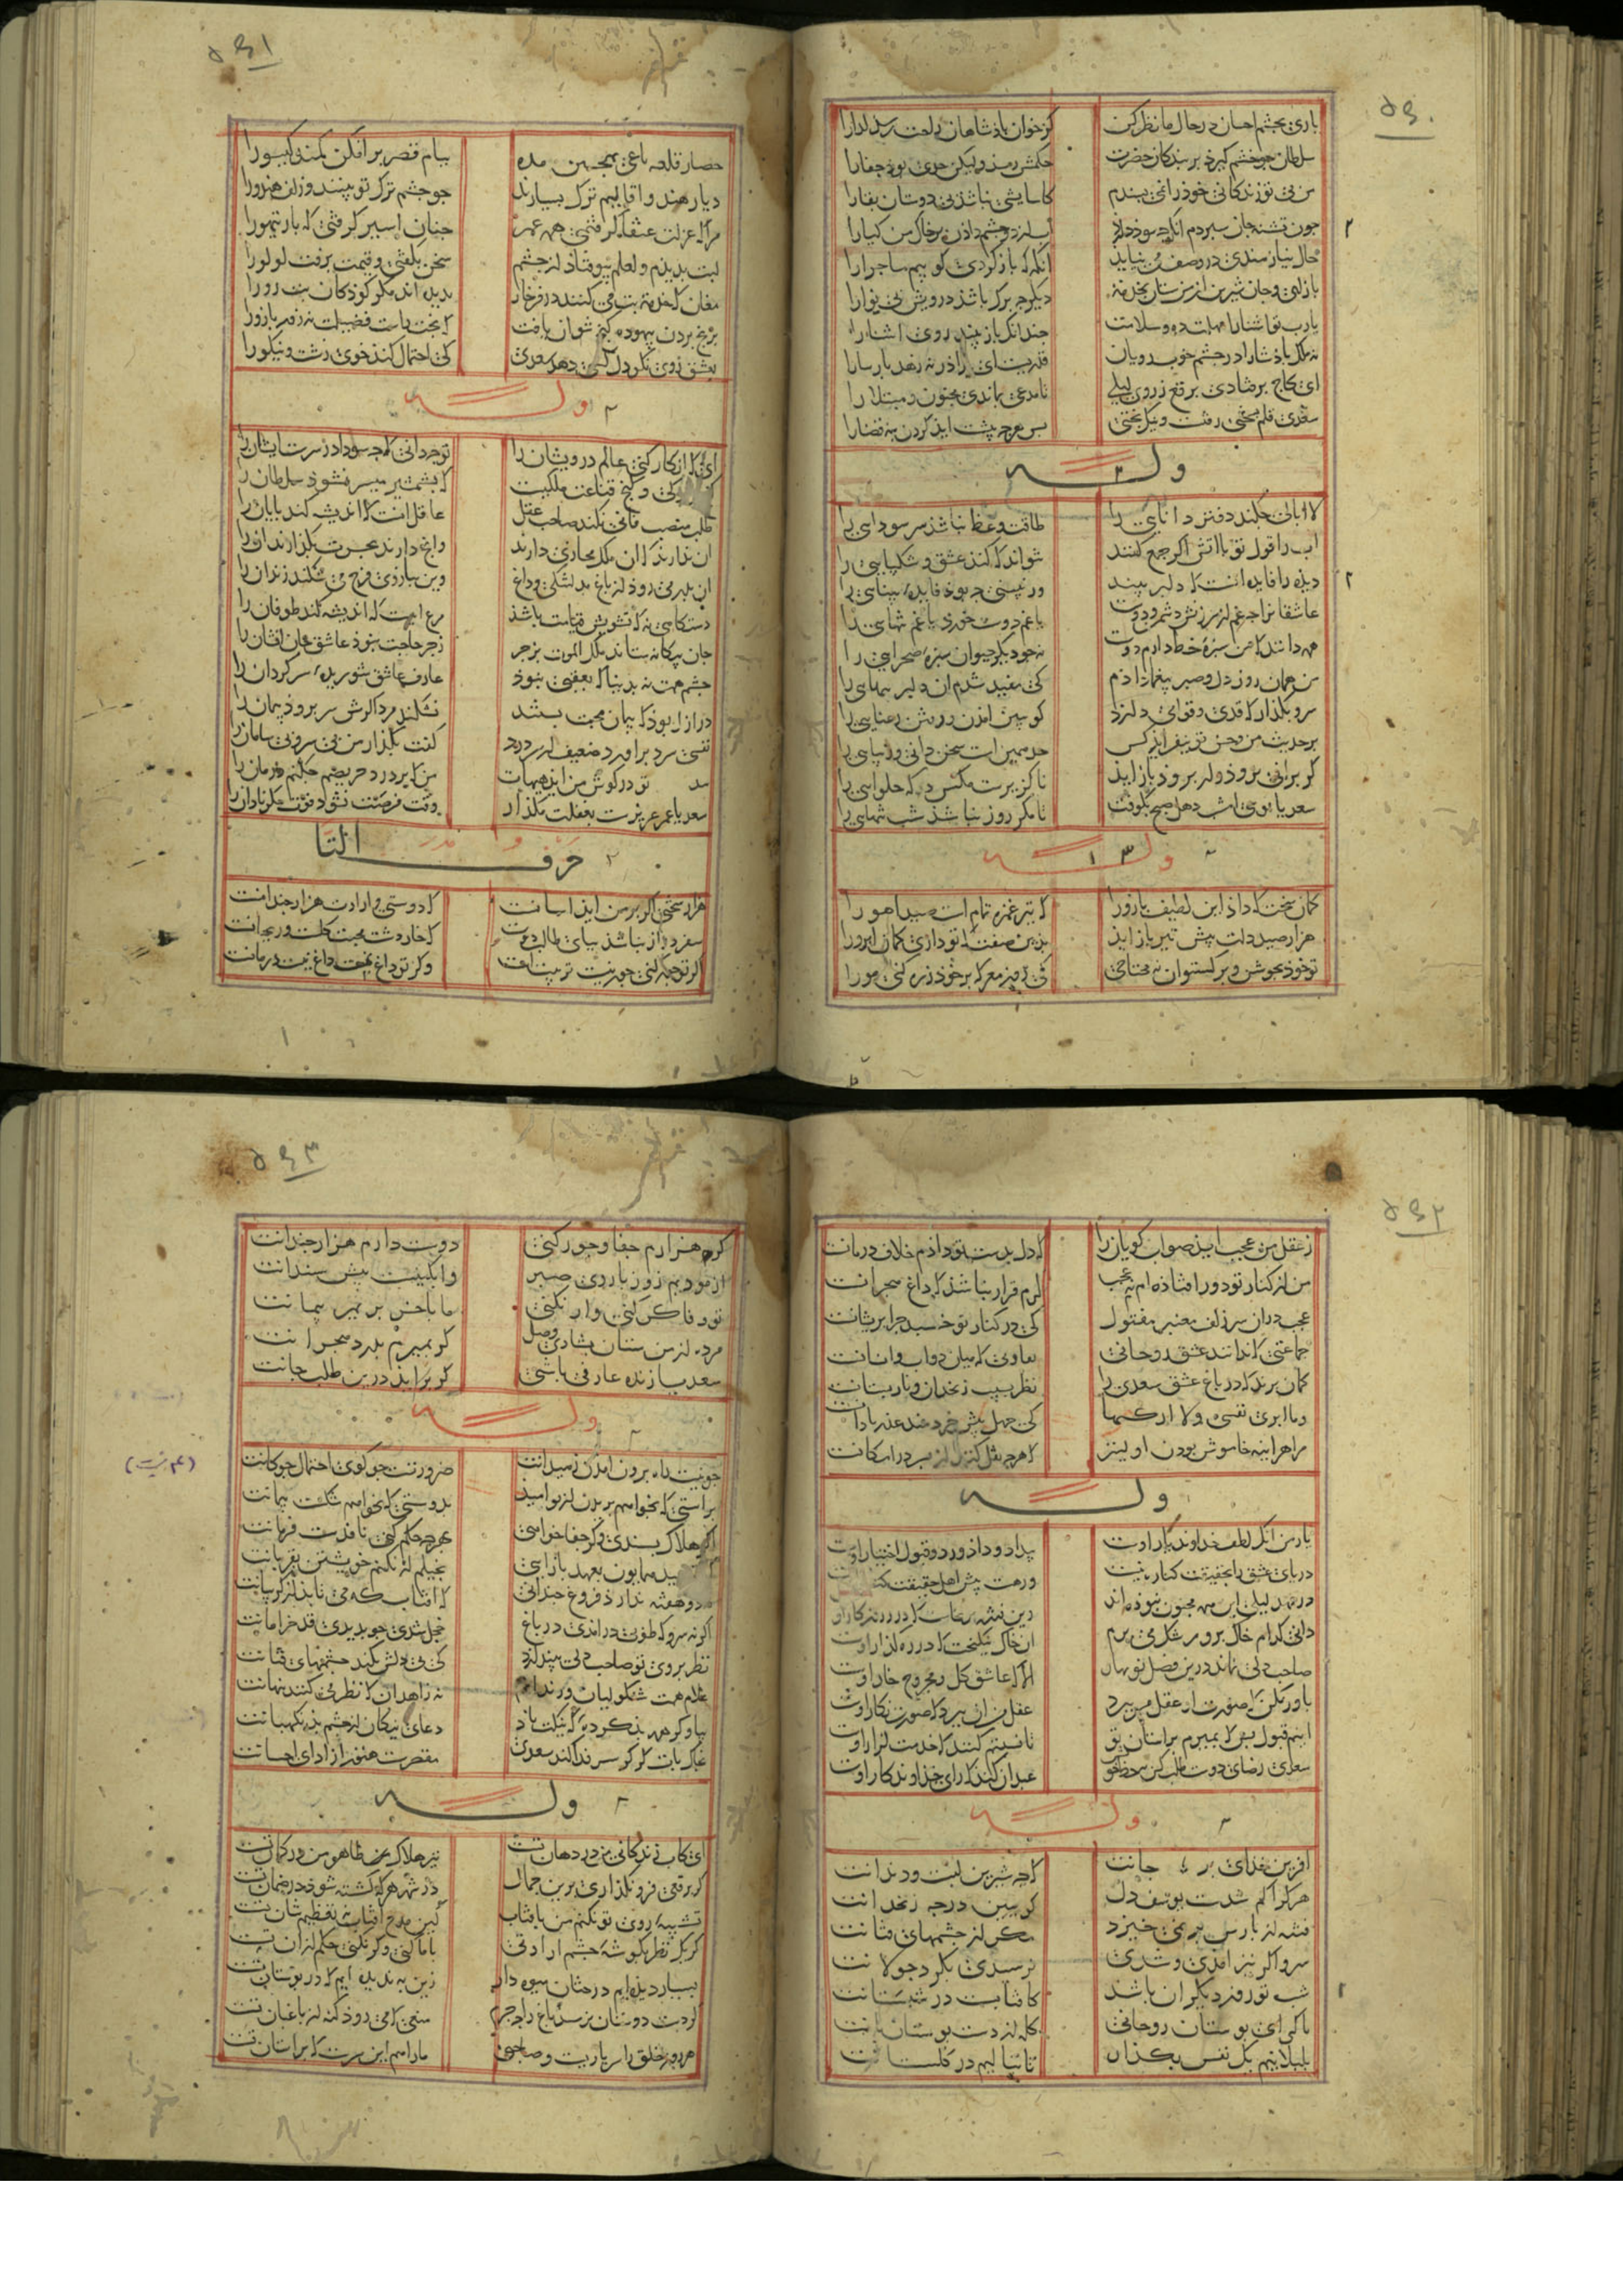 ۵۶۰
باری بچشم احسان در حال ما نظر کن کز خوان پاذشاهان راحت رسد کدارا
سلطان جو خشم کیرد بر بندکان حضرت حکمش رسد ولیکن حدی بوذ جفارا
من بی تو زندکانی خوذ را نمی بسندم کاسایشی نباشذ بی دوستان بقارا
جون تشنه جان سبردم انکه جه سوذ دارذ اب از دو جشم داذن بر خاک من کیارا
حال نیازمندی در وصف می نیاید انکه که باز کردی کویم ماجرارا
بازای و جان شیرین از من ستان بخدمت دیکر جه برک باشذ درویش بی نوارا
یارب تو اشنارا مهلت ده و سلامت جندانک باز بیند روی اشنارا
نه ملک باذشارا در جشم خوب رویان قدریست ای براذر نه زهد بارسارا
ای کاج برفتادی برقع ز روی لیلی تا مدعی نماندی مجنون مبتلارا
سعدی قلم بسختی رفت و نیک بختی بس هرجه بیشت ایذ کردن بنه قضارا
وله
لاابالی جکند دفتر دانایی را طاقت وعظ نباشذ سر سودایی را
اب را قول تو با اتش اکر جمع کند نتواند که کند عشق و شکیبایی را
دیذه را فایده انست که دلبر بیند ور نبینی جه بوذ فایده بینایی را
عاشقان را جه غم از سرزنش دشمن و دوست یا غم دوست خورد یا غم رسوایی را
همه دانند که من سبزه خط دارم دوست نه جو دیکر حیوان سبزه صحرایی را
من همان روز دل و صبر بیغما داذم که مقید شدم ان دلبر یغمایی را
سرو بکذار که قدی و قوامی دارذ کو ببین امدن و رفتن رعنایی را
بر حدیث من و حسن تو نیفزایذ کس حد همین است سخن دانی و زیبایی را
کر برانی نروذ ور بروذ باز ایذ ناکزیرست مکس دکه حلوایی را
سعدیا نوبتی امشب دهل صبح نکوفت تا مکر روز نباشذ شب تنهایی را
وله
کمان سخت که داذ این لطیف بازورا که تیر غمزه تمام است صید اهورا
هزار صید دلت بیش تیر باز ایذ بدین صفت که تو داری کمان ابرورا
تو خوذ بجوشن و برکستوان نه محتاجی که روز معرکه بر خوذ زره کنی مورا
۵۶۱
حصار قلعه باغی بمنجنیق مده ببام قصر برافکن کمند کیسورا
دیار هند و اقالیم ترک بسبارند جو جشم ترک تو بینند و زلف هندورا
مرا که عزلت عنقا کرفتمی همه عمر جنان اسیر کرفتی که باز تیهورا
لبت بدیدم و لعلم بیوفتاذ از جشم سخن بکفتی و قیمت برفت لولورا
مغان که خدمت بت می کنند در فرخار ندیده اند مکر کوذکان بت رورا
برنج بردن بیهوده کنج نتوان یافت که بخت راست فضیلت نه زور بازورا
بعشق روی نکو دل کسی دهد سعدی کی احتمال کند خوی زشت و نیکورا
وله
ای که انکار کنی عالم درویشان را تو جه دانی که جه سودا و سرست ایشان را
کنج ازادکی و کنج قناعت ملکیست که بشمشیر میسر نشوذ سلطان را
طلب منصب فانی نکند صاحب عقل عاقل انست که اندیشه کند بایان را
ان بدر می روذ از باغ بدلتنکی و داغ وین ببازوی فرح می شکند زندان را
دستکاهی نه که تشویش قیامت باشذ مرغ ابیست که اندیشه کند طوفان را
جان بیکانه ستاند ملک الموت بزجر زجر حاجت نبوذ عاشق جان افشان را
جشم همت نه بدنیا که بعقبی نبوذ عارف عاشق شوریده سرکردان را
در ازل بوذ که بیمان محبت بستند نشکند مرد اکرش سر بروذ بیمان را
نفسی سرد براورد ضعیف از سر درد کفت بکذار من بی سر و بی سامان را
تو در کوش من ایذ هیهات من که بر درد حریصم جکنم درمان را
سعدیا عمر عزیزست بغفلت مکذار وقت فرصت نشوذ فوت مکر نادان را
حرف التا
هزار سختی اکر بر من ایذ اسانست که دوستی و ارادت هزار جندانست
سفر دراز نباشذ ببای طالب دوست که خار دشت محبت کلست و ریحانست
اکر تو جور کنی جور نیست تربیتست وکر تو داغ نهی داغ نیست درمانست
۵۶۲
ز عقل من عجب ایذ صواب کویان را که دل بدست تو داذم خلاف در جانست
من از کنار تو دور افتاذه ام نه عجب کرم قرار نباشذ که داغ هجرانست
عجب در ان سر زلف معنبر مفتول که در کنار تو خسبد جرا بریشانست
جماعتی که ندانند عشق روحانی تفاوتی که میان دواب و انسانست
کمان برند که در باغ عشق سعدی را نظر بسیب زنخدان و نار بستانست
وما ابری نفسی ولا ازکیها که هرجه نقل کنند از بشر در امکانست
مرا هراینه خاموش بودن اولیتر که جهل بیش خردمند عذر نادانست
وله
یار من انک لطف خداوند یار اوست بیداذ و داذ و رد و قبول اختیار اوست
دریای عشق را بحقیقت کنار نیست ور هست بیش اهل حقیقت کنار اوست
در عهد لیلی این همه مجنون نبوذه اند وین فتنه برنخاست که در روزکار اوست
دانی کدام خاک برو رشک می برم ان خاک نیکبخت که در رهکذار اوست
صاحب دلی نماند درین فصل نوبهار الا که عاشق کل و مجروح خار اوست
باور مکن که صورت او عقل من ببرد عقل من ان ببرد که صورت نکار اوست
اینم قبول بس که بمیرم بر استان تو تا نسبتم کنند که خدمتکزار اوست
سعدی رضای دوست طلب کن نه حظ خویش عبد ان کند که رای خداوندکار اوست
وله
افرین خدای بر جانت که جه شیرین لبست و دندانت
هرکرا کم شدست یوسف دل کو ببین در جه زنخدانت
فتنه از بارس بر نمی خیزد مکر از جشمهای فتانت
سرو اکر نیز امدی و شدی نرسیدی بکرد جولانت
شب تو روز دیکران باشد کافتابست در شبستانت
تا کی ای بوستان روحانی کله از دست بوستان بانت
بلبلانیم یک نفس بکذار تا بنالیم در کلستانت
۵۶۳
کر هزارم جفا و جور کنی دوست دارم هزار جندانت
ازموذیم زور بازوی صبر وابکینست بیش سندانت
تو وفا کر کنی وار نکنی ما باخر بریم بیمانت
مژده از من ستان بشادی وصل کر بمیرم بدرد هجرانت
سعدیا زنده عارفی باشی کر براید درین طلب جانت
وله
جو نیست راه برون امدن ز میدانت ضرورتست جو کوی احتمال جوکانت
براستی که نخواهم بریدن از تو امید بدوستی که نخواهم شکست بیمانت
اکر هلاک بسندی وکر جفا خواهی بهرجه حکم کنی نافذست فرمانت
مه دو هفته ندارذ فروغ جندانی که افتاب که می تابذ از کریبانت
اکر نه سرو که طوبی در امدی در باغ خجل شدی جو بدیدی قد خرامانت
نظر بروی تو صاحب دلی نیندازذ که بی دلش نکند جشمهای فتانت
غلام همت شنکولیان و رندانم نه زاهدان که نظر می کنند بنهانت
بیا وکر همه بذ کرده ای که نیکت باذ دعای نیکان از جشم بذ نکهبانت
بخاک بات که کر سر فدا کند سعدی مقصرست هنوز از ادای احسانت
وله
ای کاب زندکانی من در دهان تست تیر هلاک ظاهر من در کمان تست
کر برقعی فرو نکذاری برین جمال در شهر هرکه کشته شوذ در ضمان تست
تشبیه روی تو نکنم من بافتاب کین مدح افتاب نه تعظیم شان تست
کر یک نظر بکوشه جشم ارادتی با ما کنی وکر نکنی حکم از ان تست
بسیار دیذه ایم درختان میوه دار زین به ندیده ایم که در بوستان تست
کر دست دوستان نرسد باغ را جه جرم منعی که می روذ کنه از باغبان تست
هر روز خلق را سر یاریست و صاحبی مارا همین سرست که بر استان تست